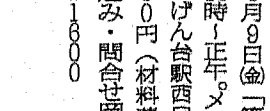 月9日㈮「
時～正午。メ
げん台駅西口
0円（材料
み・問合せ
1600